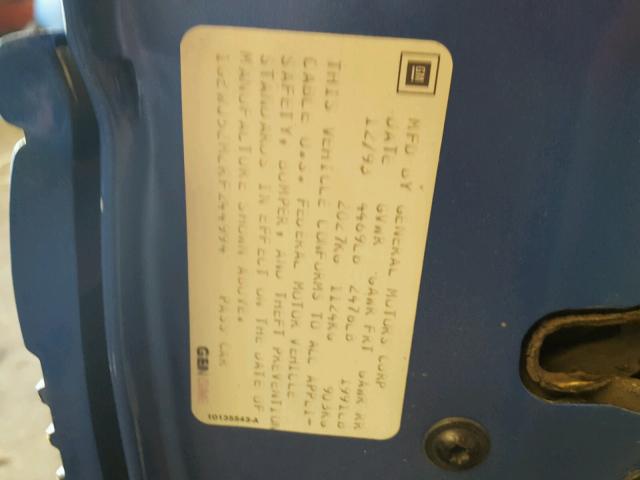 GM
MFD BY GENERAL MOTORS CORP
DATE GVWR GAWR FRT GAWR RR
12/93 4469LB 2478LB 1991LB
2027KG 1124KG 903KG
THIS VEHICLE CONFORMS TO ALL APPLI-
CABLE U.S. FEDERAL MOTOR VEHICLE
SAFETY, BUMPER, AND THEFT PREVENTION
STANDARDS IN EFFECT ON THE DATE OF
MANUFACTURE SHOWN ABOVE.
PASS CAR
10135543-A